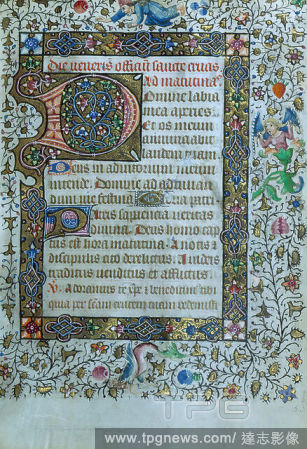 Die veneris officium sancte crucis
Ad matutinas
Domine labia
mea aperies
Et os meum
annunciabit
laudem tuam
Deus in adiutorium meum
intende Domine ad adiuvan
dum me festina Gloria patri
Patris sapiencia veritas
divina Deus homo cap
tus est hora matutina A notis
discipulis cito derelictus A iudeis
traditus venditus et afflictus
Adoramus te
quia per crucem tuam redemisti
TPG
www.tpgnews.com/ 達志影像